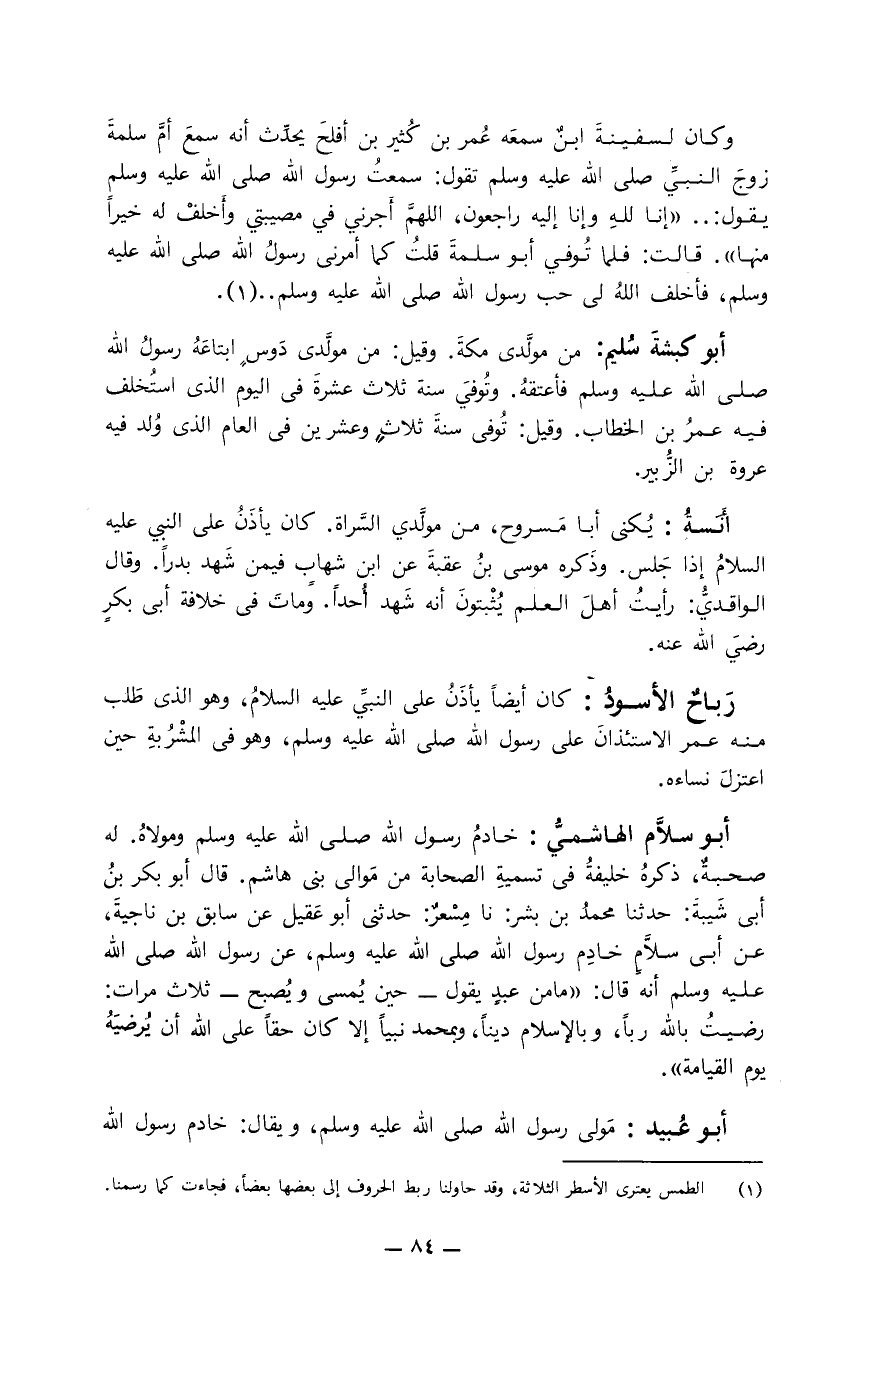 وكان لسفينةَ ابنٌ سمعَه عُمر بن كُثير بن أفلحَ يحدِّث أنه سمعَ أمَّ سلمةَ
زوجَ النبيِّ صلى الله عليه وسلم تقول: سمعتُ رسول الله صلى الله عليه وسلم
يقول:.. «إنا للهِ وإنا إليه راجعون، اللهمَّ أَجرني في مصيبتي وأَخلفْ له خيراً
منها». قالت: فلما تُوفي أبو سلمةَ قلتُ كما أمرنى رسولُ الله صلى الله عليه
وسلم، فأخلف اللهُ لى حب رسول الله صلى الله عليه وسلم..(١).
أبو كبشةَ سُليم: من مولَّدى مكةَ. وقيل: من مولَّدى دَوسٍ ابتاعَهُ رسولُ الله
صلى الله عليه وسلم فأعتقهُ. وتُوفيَ سنة ثلاث عشرةَ فى اليوم الذى استُخلف
فيه عمرُ بن الخطاب. وقيل: تُوفى سنةَ ثلاثٍ وعشرين فى العام الذى وُلد فيه
عروة بن الزُّبير.
أَنَسةُ : يُكنى أبا مَسروح، من مولَّدي السَّراة. كان يأذَنُ على النبي عليه
السلامُ إذا جَلس. وذَكره موسى بنُ عقبةَ عن ابن شهابٍ فيمن شَهد بدراً. وقال
الواقديُّ: رأيتُ أهلَ العلم يُثْبتونَ أنه شَهد أُحداً. وماتَ فى خلافة أبى بكرٍ
رضيَ الله عنه.
رَباحٌ الأسودُ : كان أيضاً يأذَنُ على النبيِّ عليه السلامُ، وهو الذى طَلب
منه عمر الاستئذانَ على رسول الله صلى الله عليه وسلم، وهو فى المشْرُبةِ حين
اعتزلَ نساءه.
أبو سلاَّم الهاشميُّ : خادمُ رسول الله صلى الله عليه وسلم ومولاهُ. له
صحبةٌ، ذكرهُ خليفةُ فى تسميةِ الصحابة من مَوالى بنى هاشم. قال أبو بكر بنُ
أبى شَيبةَ: حدثنا محمدُ بن بشر: نا مِسْعرٌ: حدثنى أبو عَقيل عن سابق بن ناجيةَ،
عن أبى سلاَّمٍ خادِم رسول الله صلى الله عليه وسلم، عن رسول الله صلى الله
عليه وسلم أنه قال: «مامن عبدٍ يقول — حين يُمسى ويُصبح — ثلاث مرات:
رضيتُ بالله رباً، وبالإسلام ديناً، وبمحمد نبياً إلا كان حقاً على الله أن يُرضيَهُ
يوم القيامة».
أبو عُبيد : مَولى رسول الله صلى الله عليه وسلم، ويقال: خادم رسول الله
(١) الطمس يعترى الأسطر الثلاثة، وقد حاولنا ربط الحروف إلى بعضها بعضاً، فجاءت كما رسمنا.
— ٨٤ —